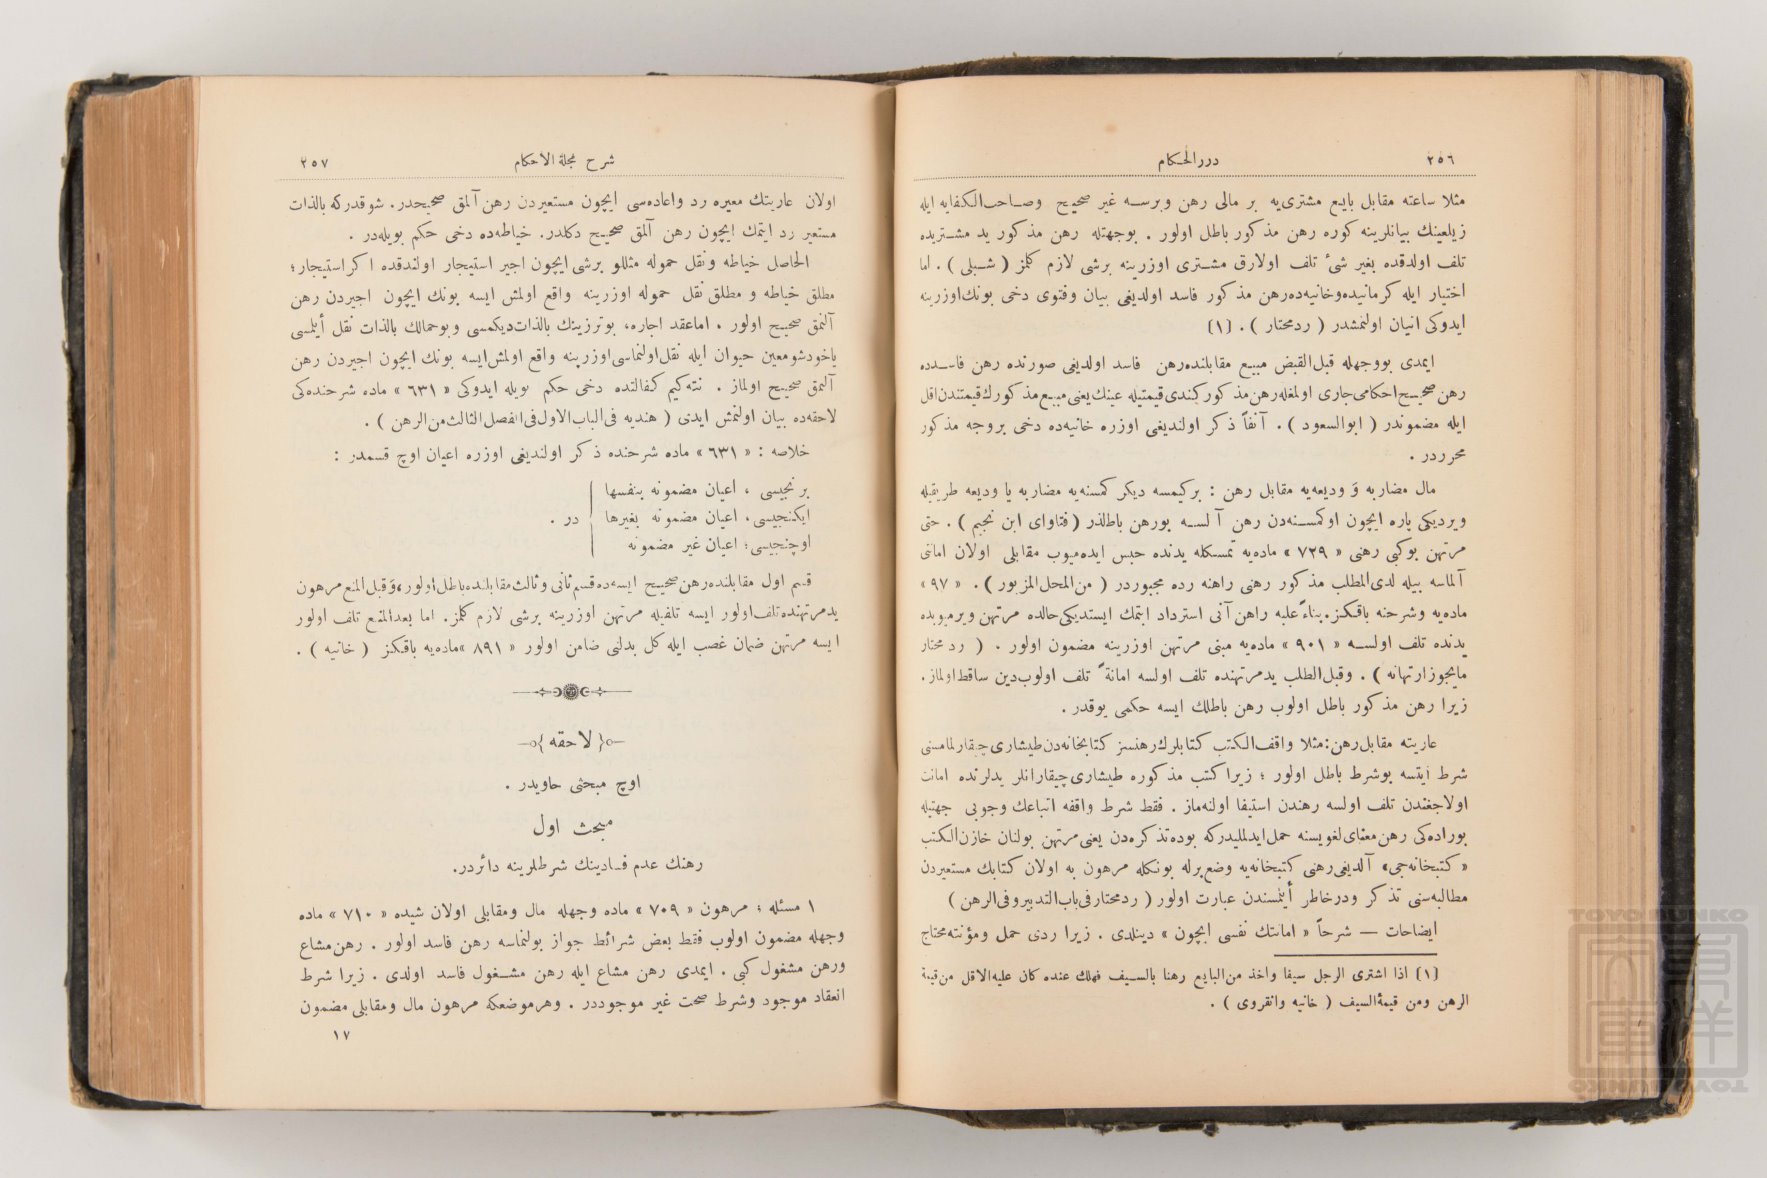 ٢٥٦
دررالحكام
مثلا ساعته مقابل بايع مشترى‌يه بر مالى رهن ويرسه غير صحيح وصاحب‌الكفايه ايله
زيلعينك بيانلرينه كوره رهن مذكور باطل اولور . بوجهتله رهن مذكور يد مشتريده
تلف اولدقده بغير شئ تلف اولارق مشترى اوزرينه برشى لازم كلمز ( شبلى ) . اما
اختيار ايله كرمانيده‌وخانيه‌ده‌رهن مذكور فاسد اولديغى بيان وفتوى دخى بونك‌اوزرينه
ايدوكى اتيان اولنمشدر ( ردمحتار ) . (١)
ايمدى بووجهله قبل‌القبض مبيع مقابلنده‌رهن فاسد اولديغى صورتده رهن فاسدده
رهن‌صحيح‌احكامى‌جارى اولمغله‌رهن‌مذكوركندى‌قيمتيله عينك‌يعنى مبيع‌مذكورك‌قيمتندن‌اقل
ايله مضموندر ( ابوالسعود ) . آنفاً ذكر اولنديغى اوزره خانيه‌ده دخى بروجه مذكور
محرردر .
مال مضاربه و وديعه‌يه مقابل رهن : بركيمسه ديكر كمسنه‌يه مضاربه يا وديعه طريقيله
ويرديكى پاره ايچون اوكمسنه‌دن رهن آلسه بورهن باطلدر ( فتاواى ابن نجيم ) . حتى
مرتهن بوكبى رهنى « ٧٢٩ » ماده‌يه تمسكله يدنده حبس ايده‌ميوب مقابلى اولان امانتى
آلماسه بيله لدى‌المطلب مذكور رهنى راهنه رده مجبوردر ( من‌المحل‌المزبور ) . « ٩٧ »
ماده‌يه وشرحنه باقكز.بناءً‌عليه راهن آنى استرداد ايتمك ايستديكى‌حالده مرتهن ويرميوبده
يدنده تلف اولسه « ٩٠١ » ماده‌يه مبنى مرتهن اوزرينه مضمون اولور . ( ردمحتار
مايجوزارتهانه ) . وقبل‌الطلب يدمرتهنده تلف اولسه امانةً تلف اولوب‌دين ساقط‌اولماز.
زيرا رهن مذكور باطل اولوب رهن باطلك ايسه حكمى يوقدر .
عاريته مقابل‌رهن:مثلا واقف‌الكتب كتابلرك‌رهنسز كتابخانه‌دن‌طيشارى‌چيقارلمامسنى
شرط ايتسه بوشرط باطل اولور ؛ زيراكتب مذكوره طيشارى‌چيقارانلر يدلرنده امانت
اولاجغندن تلف اولسه رهندن استيفا اولنه‌ماز . فقط شرط واقفه اتباعك وجوبى جهتيله
بوراده‌كى رهن‌معناى‌لغويسنه حمل‌ايدلمليدركه بوده‌تذكره‌دن يعنى‌مرتهن بولنان خازن‌الكتب
« كتبخانه‌جى» آلديغى‌رهنى كتبخانه‌يه وضع‌برله بونكله مرهون به اولان كتابك مستعيردن
مطالبه‌سنى تذكر ودرخاطر ايلمسندن عبارت اولور ( ردمحتارفى‌باب‌التدبيروفى‌الرهن )
ايضاحات — شرحاً « امانتك نفسى ايچون » دينلدى . زيرا ردى حمل ومؤنته‌محتاج
(١) اذا اشترى الرجل سيفا واخذ من‌البايع رهنا بالسيف فهلك عنده كان عليه‌الاقل من‌قيمة
الرهن ومن قيمةالسيف ( خانيه وانقروى ) .
شرح مجلة الاحكام
٢٥٧
اولان عاريتك معيره رد واعاده‌سى ايچون مستعيردن رهن آلمق صحيحدر. شوقدركه بالذات
مستعير رد ايتمك ايچون رهن آلمق صحيح دكلدر. خياطه‌ده دخى حكم بويله‌در .
الحاصل خياطه ونقل حموله مثللو برشى ايچون اجير استيجار اولندقده اكراستيجار؛
مطلق خياطه و مطلق نقل حموله اوزرينه واقع اولمش ايسه بونك ايچون اجيردن رهن
آلنمق صحيح اولور . اماعقد اجاره، بوترزينك بالذات‌ديكمسى وبوحمالك بالذات نقل ايلمسى
ياخودشومعين حيوان ايله نقل‌اولنماسى‌اوزرينه واقع اولمش‌ايسه بونك ايچون اجيردن رهن
آلنمق صحيح اولماز . نته‌كيم كفالتده دخى حكم بويله ايدوكى « ٦٣١ » ماده شرحنده‌كى
لاحقه‌ده بيان اولنمش ايدى ( هنديه فى‌الباب‌الاول‌فى‌الفصل‌الثالث‌من‌الرهن ) .
خلاصه : « ٦٣١ » ماده شرحنده ذكر اولنديغى اوزره اعيان اوچ قسمدر :
برنجيسى ، اعيان مضمونه بنفسها
ايكنجيسى، اعيان مضمونه بغيرها
در .
اوچنجيسى؛ اعيان غير مضمونه
قسم اول مقابلنده‌رهن‌صحيح ايسه‌ده‌قسم‌ثانى وثالث‌مقابلنده‌باطل‌اولور،وقبل‌المنع‌مرهون
يدمرتهنده‌تلف‌اولور ايسه تلفيله مرتهن اوزرينه برشى لازم كلمز. اما بعدالمنع تلف اولور
ايسه مرتهن ضمان غصب ايله كل بدلنى ضامن اولور « ٨٩١ »ماده‌يه باقكز ( خانيه ) .
لاحقه
اوچ مبحثى حاويدر .
مبحث اول
رهنك عدم فسادينك شرطلرينه دائردر.
١ مسئله ؛ مرهون « ٧٠٩ » ماده وجهله مال ومقابلى اولان شيده « ٧١٠ » ماده
وجهله مضمون اولوب فقط بعض شرائط جواز بولنماسه رهن فاسد اولور . رهن‌مشاع
ورهن مشغول كبى . ايمدى رهن مشاع ايله رهن مشغول فاسد اولدى . زيرا شرط
انعقاد موجود وشرط صحت غير موجوددر . وهرموضعكه مرهون مال ومقابلى مضمون
١٧
TOYO BUNKO